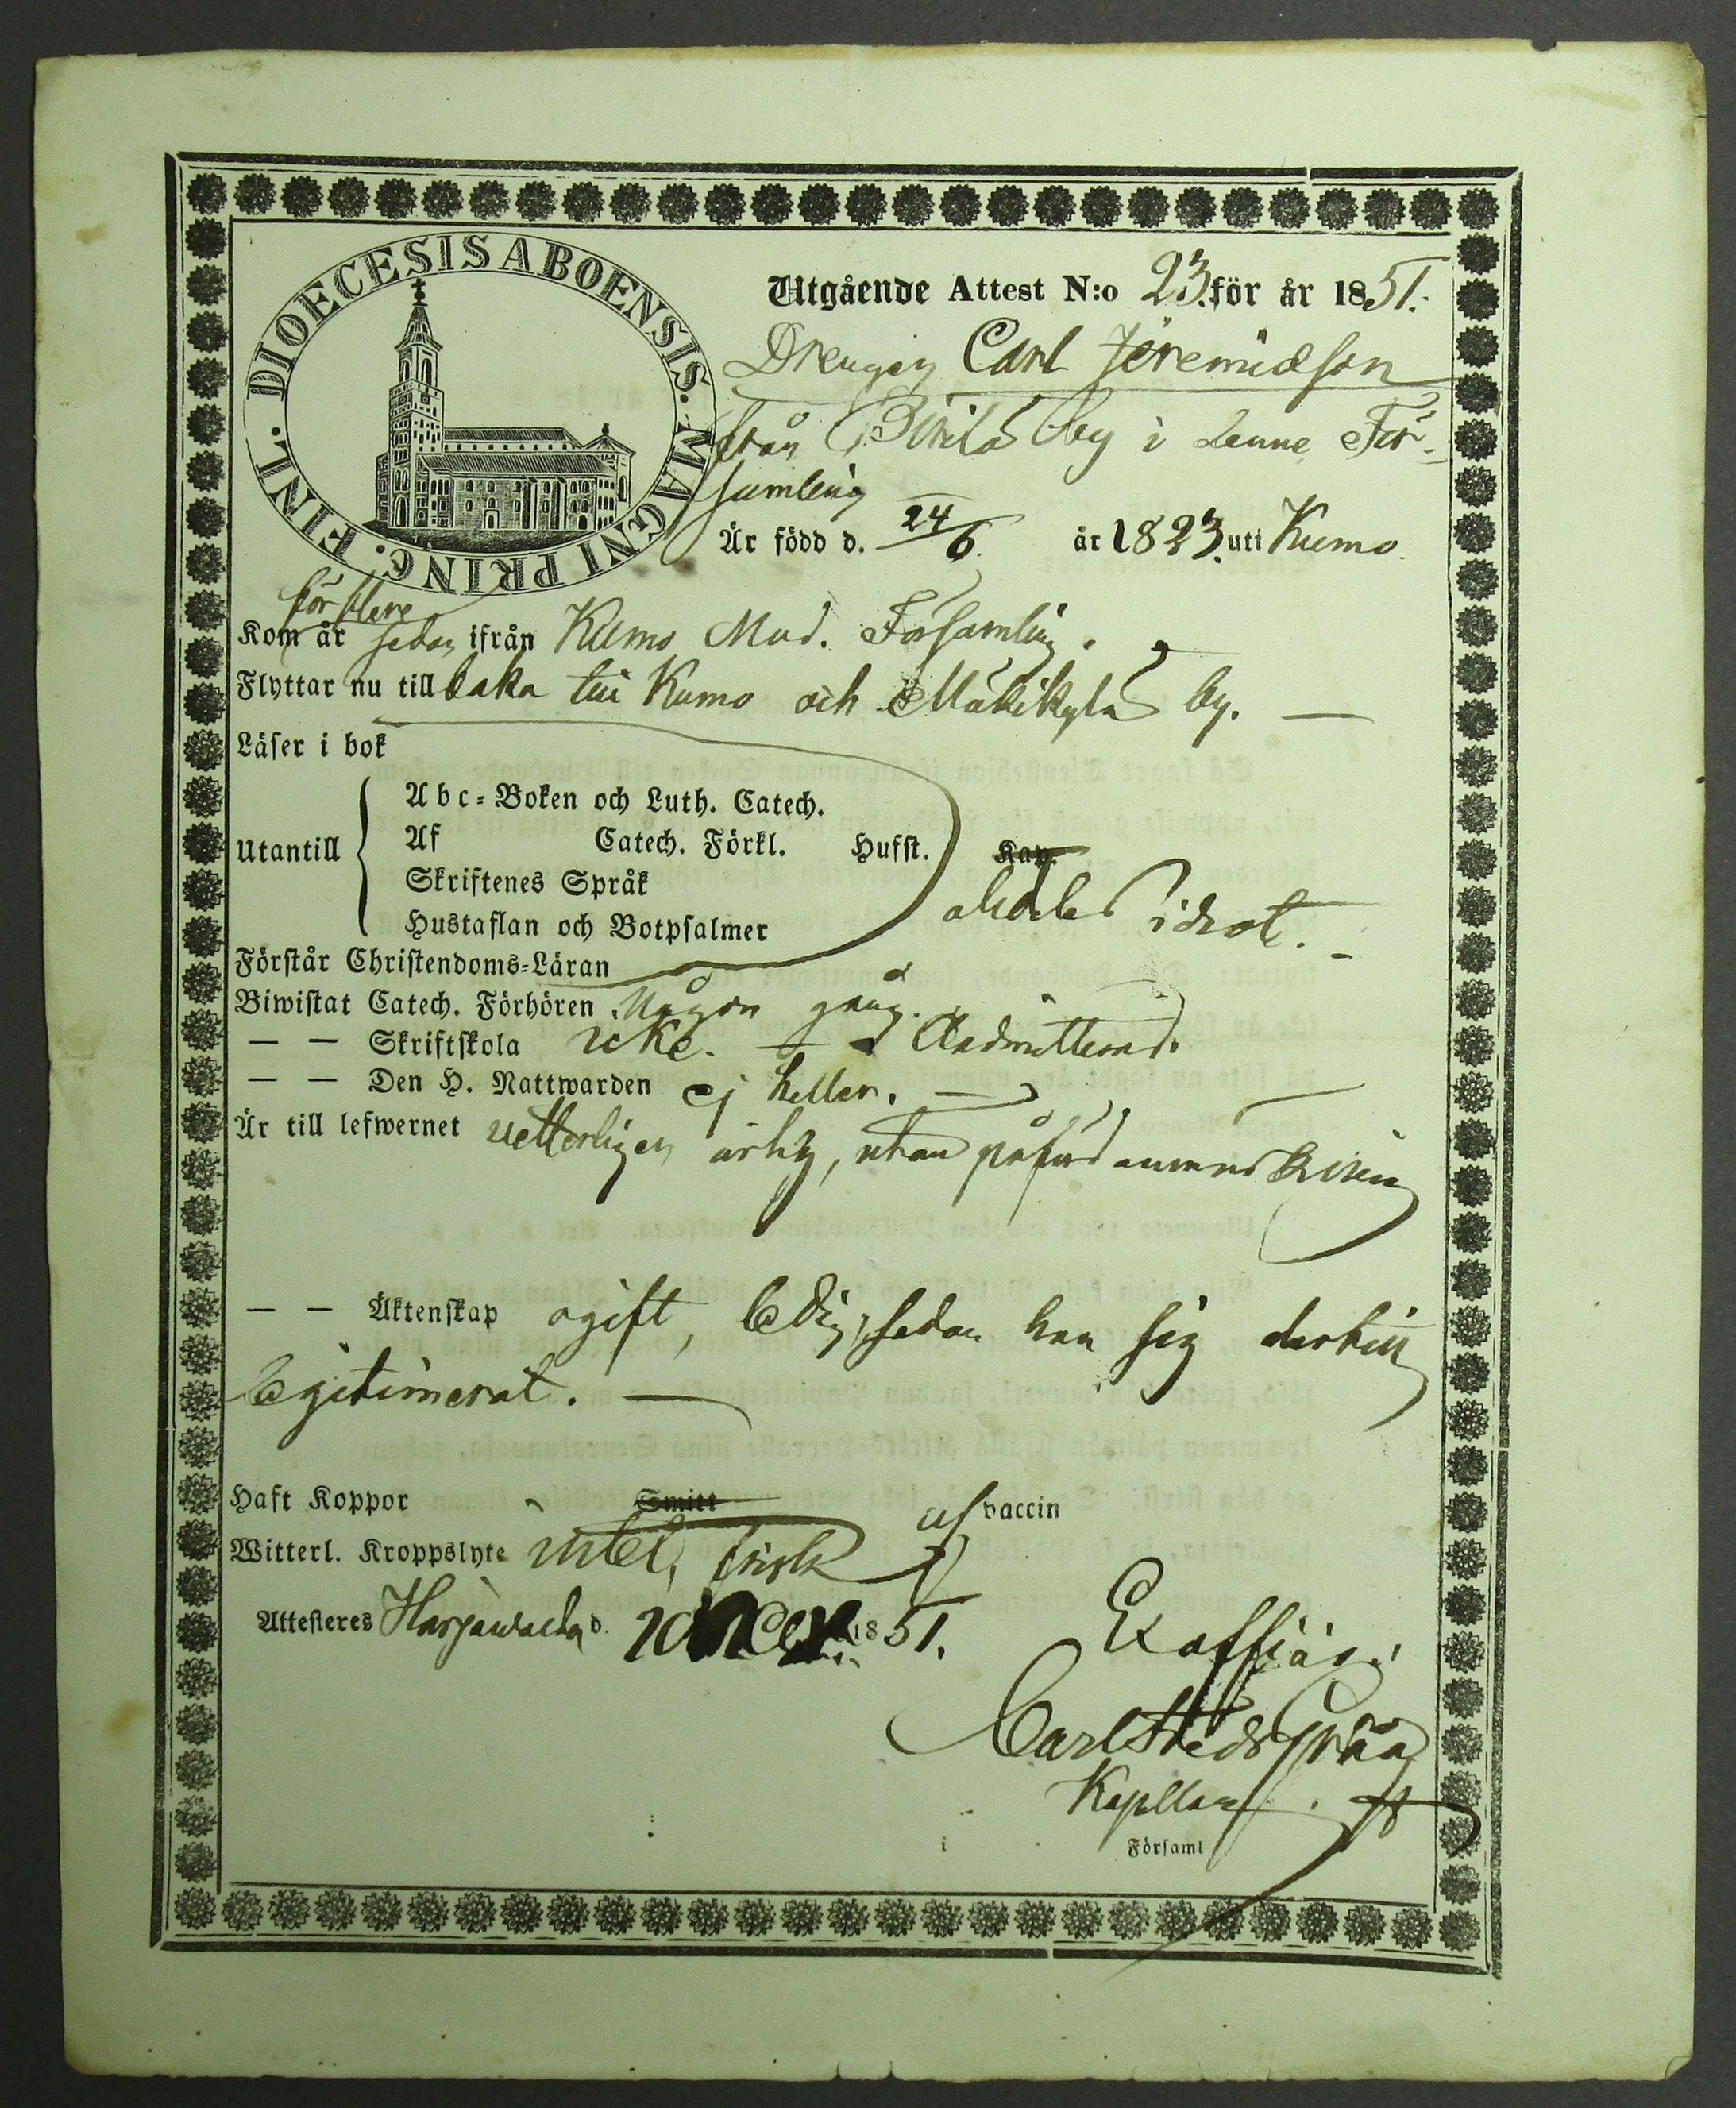 DIOECESIS ABOENSIS. MAGNI PRINC. FINL.
Utgående Attest N:o 23. för år 1851.
Drengen Carl Jeremiedson
från Pirilä by i denne För-
samling
Är född d. 24/6. år 1823. uti Kumo.
för flere
Kom år sedan ifrån Kumo Mod. Församling.
Flyttar nu till baka till Kumo och Mäkikylä by. —
Läser i bok
Utantill
Abc-Boken och Luth. Catech.
Af Catech. Förkl. Husst. Kap.
Skriftenes Språk
Hustaflan och Botpsalmer
idiot. -
Förstår Christendoms-Läran
Biwistat Catech. Förhören Någon gång.
— — Skriftskola icke. — Admitterad.
— — Den H. Nattwarden ej heller. —
Är till lefwernet vetterligen ärlig, utan påförd
— — Äktenskap ogift, ledig, sedan han sig dertill
legitimerat. —
Haft Koppor Smitt af vaccin
Witterl. Kroppslyte intet, frisk
Attesteres Harjawalda d. 20 1851.
Ex officio:
Carl
Kapellan
i Församl